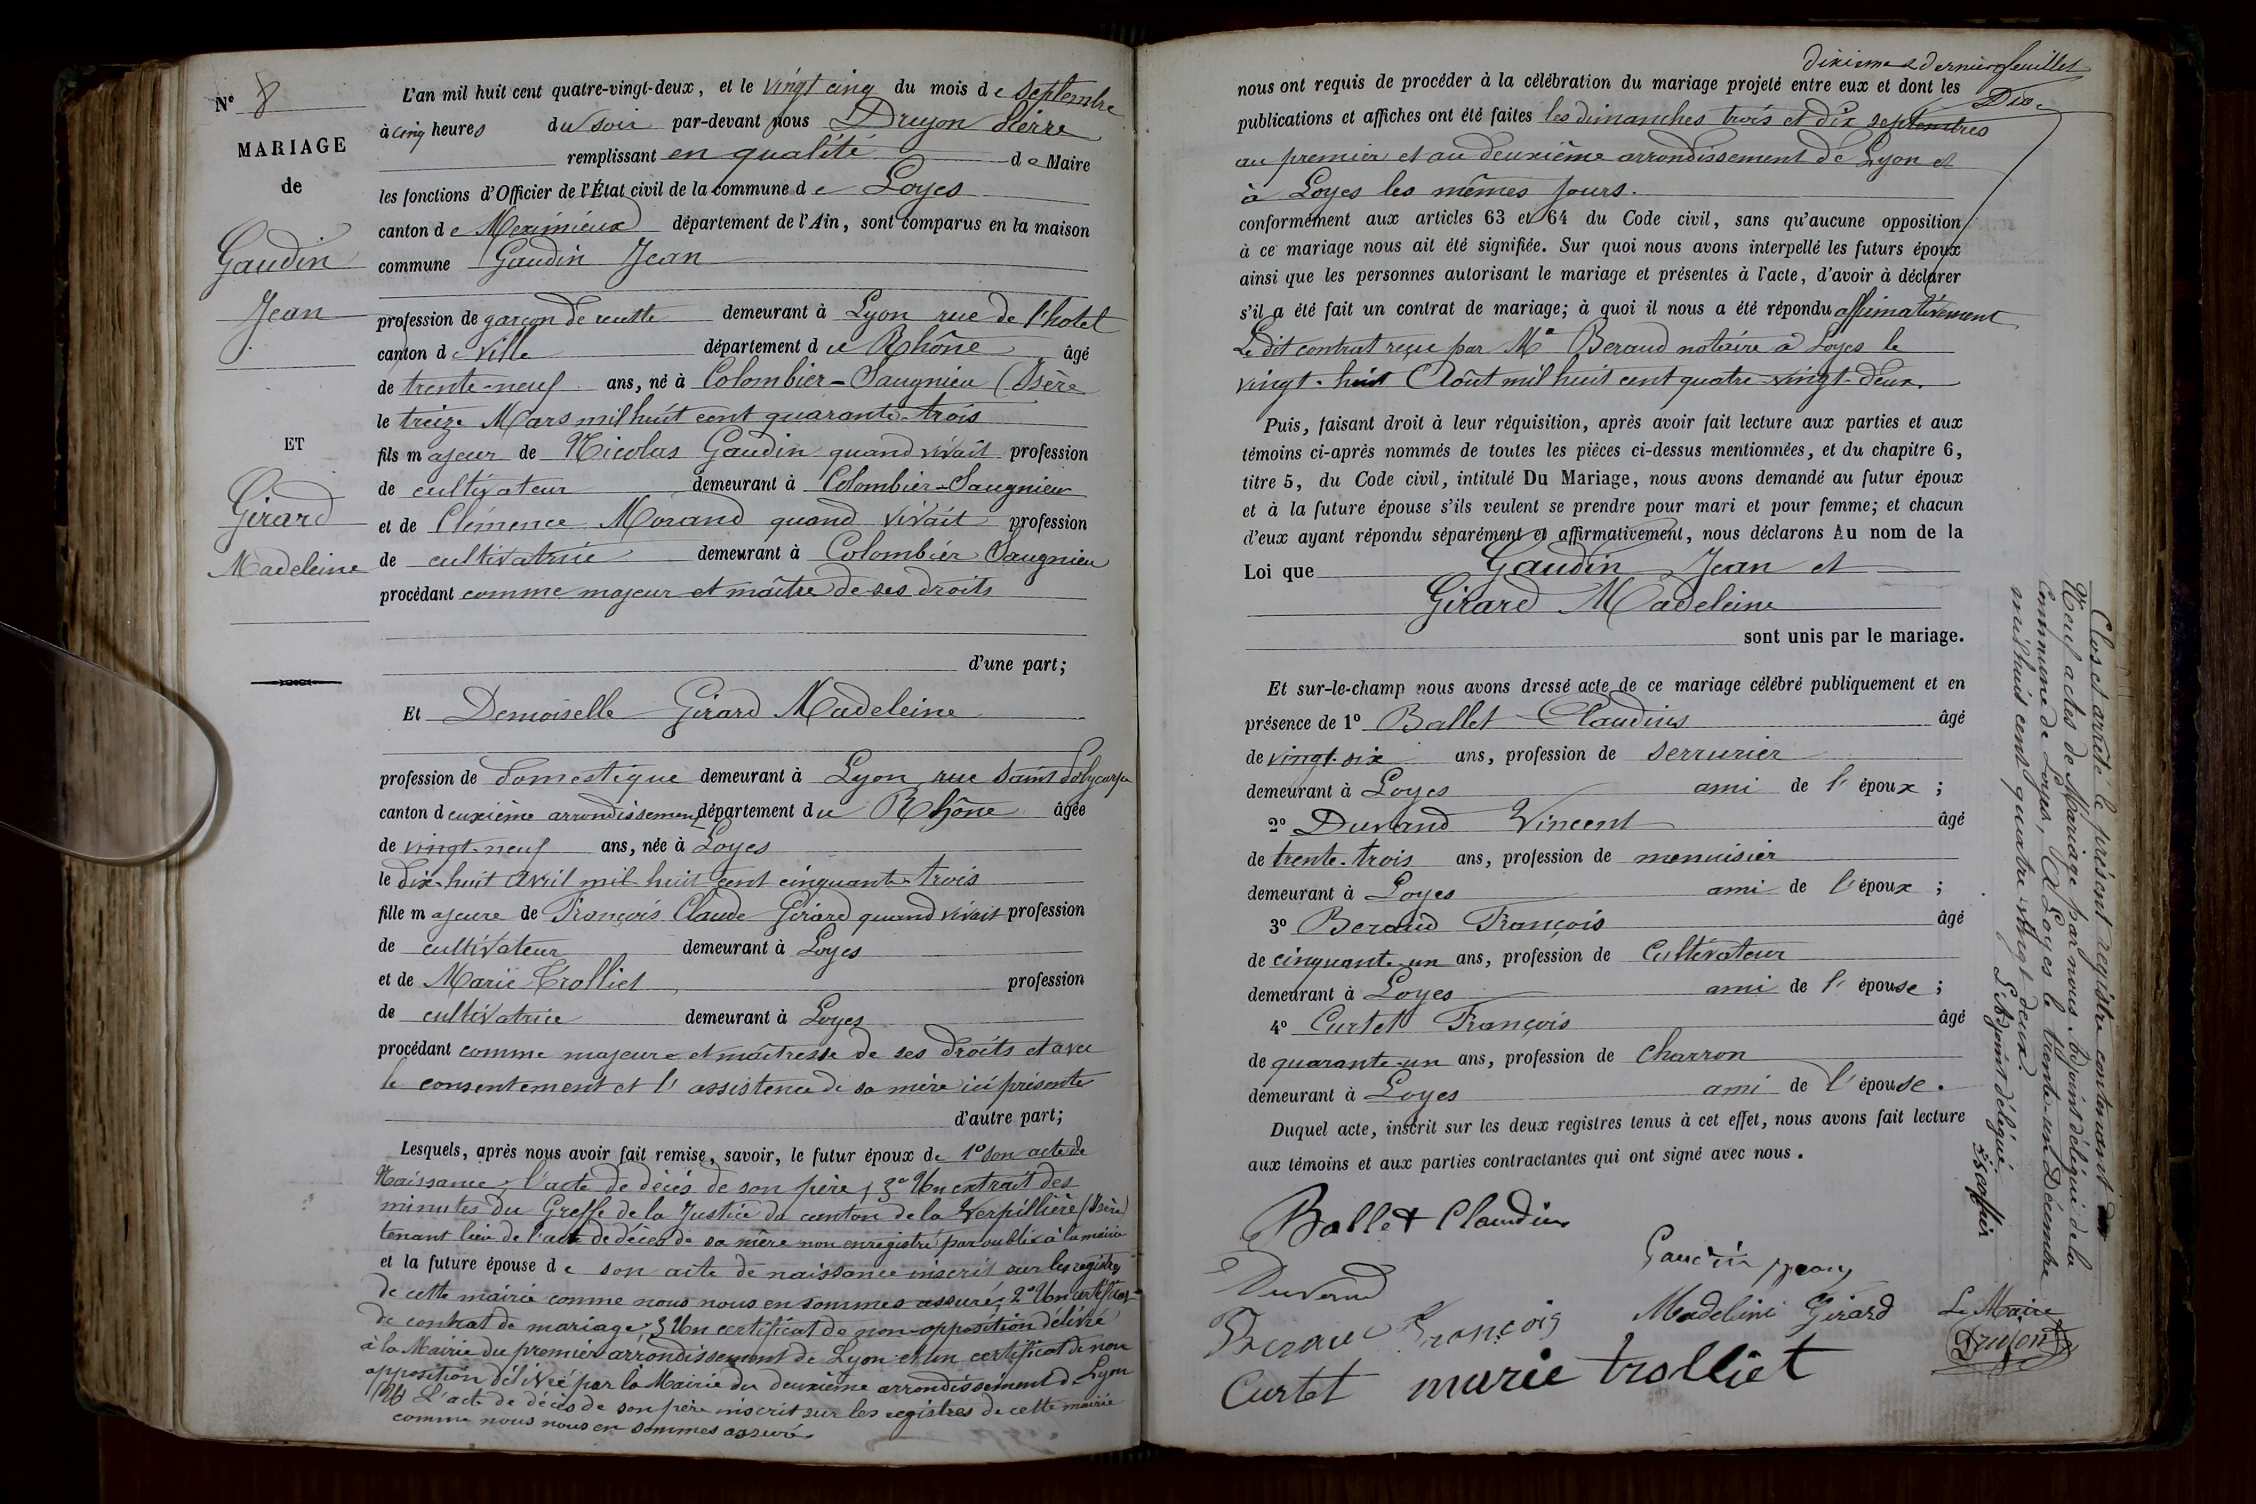 N° 8
MARIAGE
de
Gaudin
Jean
ET
Girard
Madeleine
L'an mil huit cent quatre-vingt-deux, et le vingt cinq du mois de septembre
à cinq heures du soir par-devant nous Drujon Pierre
remplissant en qualité de Maire
les fonctions d'Officier de l'État civil de la commune de Loyes
canton de Meximieux département de l'Ain, sont comparus en la maison
commune Gaudin Jean
profession de garçon de recette demeurant à Lyon rue de l'hotel
canton de ville département du Rhône âgé
de trente-neuf ans, né à Colombier-Saugnieu (Isère
le treize Mars mil huit cent quarante-trois
fils majeur de Nicolas Gaudin quand vivait profession
de cultivateur demeurant à Colombier-Saugnieu
et de Clémence Morand quand vivait profession
de cultivatrice demeurant à Colombier Saugnieu
procédant comme majeur et maître de ses droits
d'une part;
Et Demoiselle Girard Madeleine
profession de domestique demeurant à Lyon, rue Saint Polycarpe
canton deuxième arrondissement département du Rhône âgée
de vingt-neuf ans, née à Loyes
le dix-huit avril mil huit cent cinquante-trois
fille majeure de François Claude Girard quand vivait profession
de cultivateur demeurant à Loyes
et de Marie Trolliet profession
de cultivatrice demeurant à Loyes
procédant comme majeure et maîtresse de ses droits et avec
le consentement et l'assistence de sa mère ici présente
d'autre part;
Lesquels, après nous avoir fait remise, savoir, le futur époux de 1° son acte de
Naissance, l'acte de décès de son père, 3° Un extrait des
minutes du Greffe de la Justice du canton de la Verpillière (Isère)
tenant lieu de l'acte de décès de sa mère non enregistré par oubli à la mairie
et la future épouse de son acte de naissance inscrit sur les registres
de cette mairie comme nous nous en sommes assuré, 2° Un certificat
de contrat de mariage, 3 Un certificat de non-opposition délivré
à la Mairie du premier arrondissement de Lyon et un certificat de non
opposition délivré par la Mairie du deuxième arrondissement de Lyon
L'acte de décès de son père inscrit sur les registres de cette mairie
comme nous nous en sommes assuré.
dixième & dernier feuillet
Dro.
nous ont requis de procéder à la célébration du mariage projeté entre eux et dont les
publications et affiches ont été faites les dimanches trois et dix septembres
au premier et au deuxième arrondissement de Lyon et
à Loyes les mêmes jours.
conformément aux articles 63 et 64 du Code civil, sans qu'aucune opposition
à ce mariage nous ait été signifiée. Sur quoi nous avons interpellé les futurs époux
ainsi que les personnes autorisant le mariage et présentes à l'acte, d'avoir à déclarer
s'il a été fait un contrat de mariage; à quoi il nous a été répondu affirmativement
Le dit contrat reçu par Me Beraud notaire à Loyes le
vingt-huit Août mil huit cent quatre-vingt-deux.
Puis, faisant droit à leur réquisition, après avoir fait lecture aux parties et aux
témoins ci-après nommés de toutes les pièces ci-dessus mentionnées, et du chapitre 6,
titre 5, du Code civil, intitulé Du Mariage, nous avons demandé au futur époux
et à la future épouse s'ils veulent se prendre pour mari et pour femme; et chacun
d'eux ayant répondu séparément et affirmativement, nous déclarons Au nom de la
Loi que Gaudin Jean et
Girard Madeleine
sont unis par le mariage.
Et sur-le-champ nous avons dressé acte de ce mariage célébré publiquement et en
présence de 1° Ballet Claudius âgé
de vingt-six ans, profession de serrurier
demeurant à Loyes ami de l'époux ;
2° Durand Vincent âgé
de trente-trois ans, profession de menuisier
demeurant à Loyes ami de l'époux ;
3° Beraud François âgé
de cinquante-un ans, profession de Cultivateur
demeurant à Loyes ami de l'épouse ;
4° Curtet François âgé
de quarante-un ans, profession de charron
demeurant à Loyes ami de l'épouse.
Duquel acte, inscrit sur les deux registres tenus à cet effet, nous avons fait lecture
aux témoins et aux parties contractantes qui ont signé avec nous.
Ballet Claudius
Gaudin jean
Durand
Madeleine Girard
Le Maire
Beraud François
Drujon
Curtet marie trolliet
Clos et arrêté le présent registre contenant
Neuf actes de Mariage par nous Adjoint délégué de la
Commune de Loyes, A Loyes le trente-un Décembre
mil huit cent quatre-vingt-deux.
L'Adjoint délégué